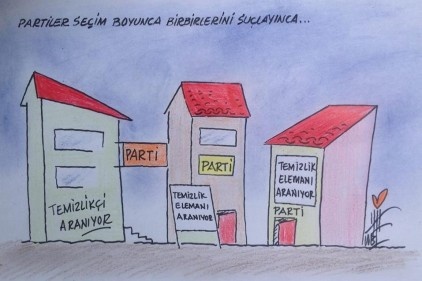 PARTİLER SEÇİM BOYUNCA BİRBİRLERİNİ SUÇLAYINCA...
PARTİ
TEMİZLİKÇİ
ARANIYOR
PARTİ
TEMİZLİK
ELEMANI
ARANIYOR
TEMİZLİK
ELEMANI
ARANIYOR
PARTİ